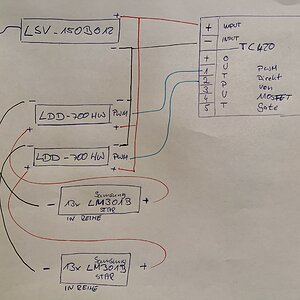 LSV-150B012
+ INPUT
- INPUT
TC420
+
1
2
3
4
5
O
U
T
P
U
T
PWM
Direkt
von
MOSFET
Gate
LDD-700HW PWM
LDD-700HW PWM
Samsung
13x LM301B
STAR
IN REIHE
Samsung
13x LM301B
STAR
IN REIHE